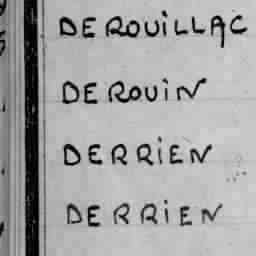 DEROUILLAC
DEROUIN
DERRIEN
DERRIEN